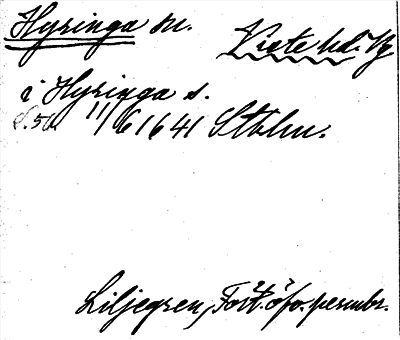 Hyringa sn. Viste hd. Vg
i Hyringa s.
S. 50 11/6 1641 Sthlm.
Liljegren, Fört. öfv. permbr.